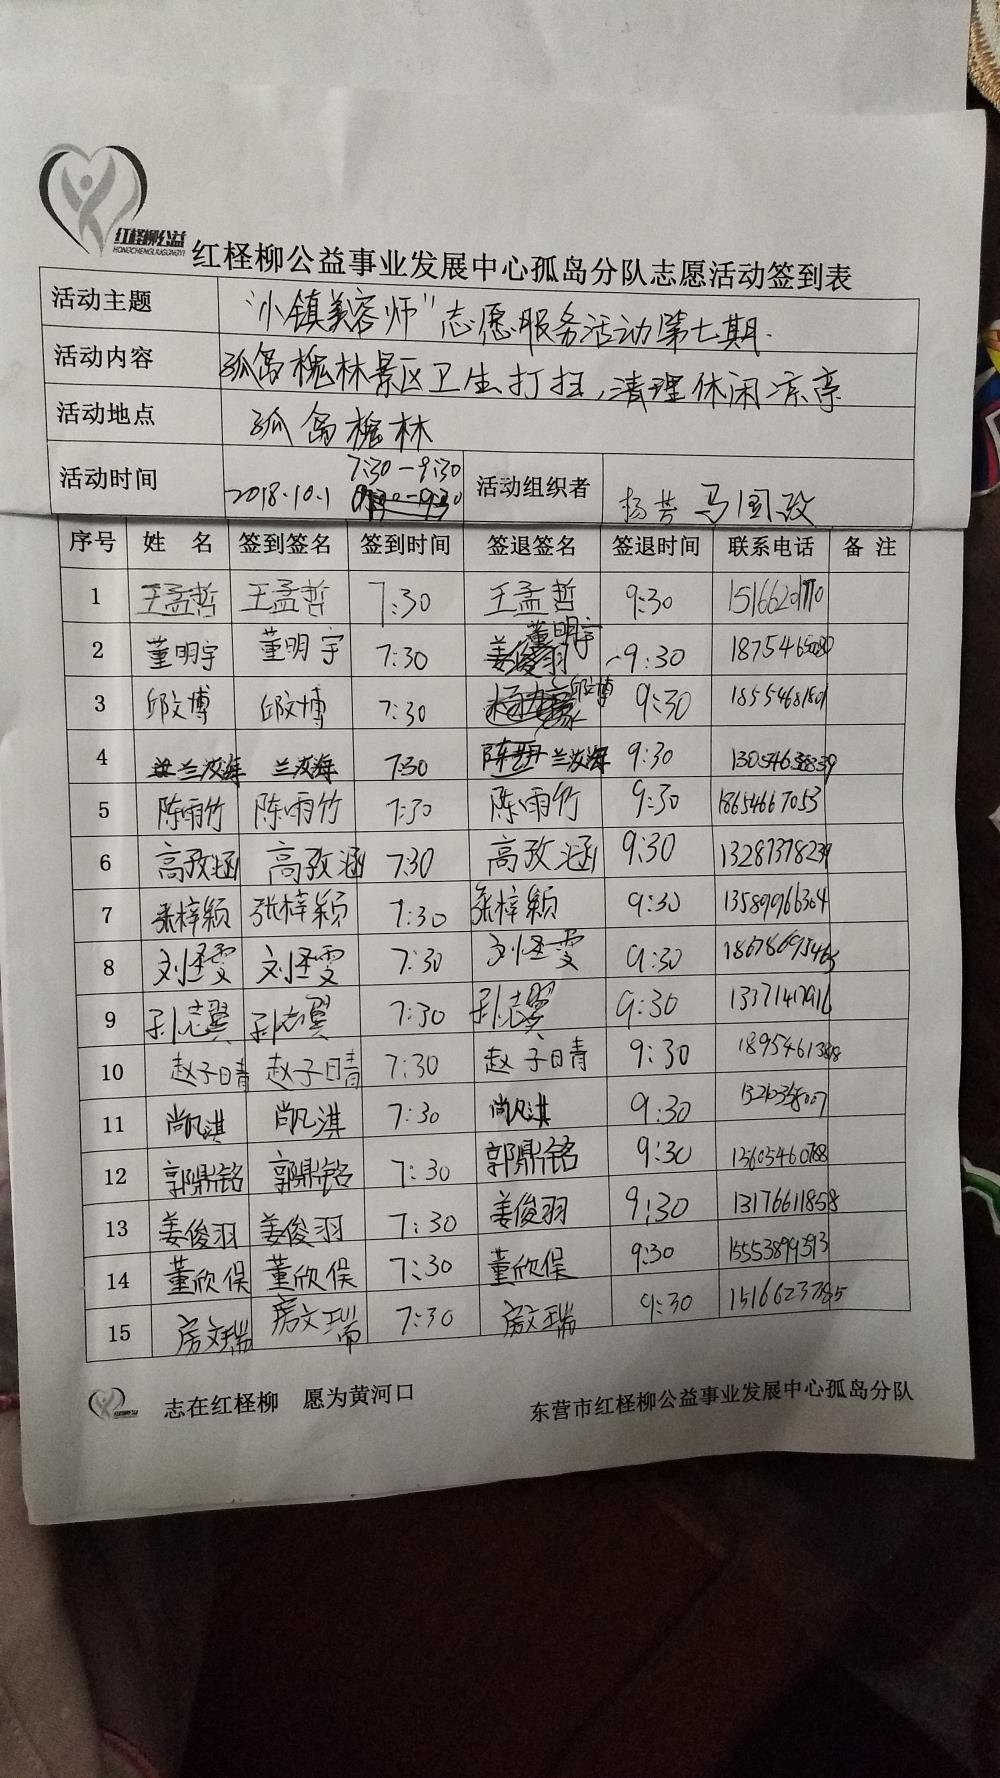 红柽柳公益
HONGCHENGLIUGONGYI
红柽柳公益事业发展中心孤岛分队志愿活动签到表
活动主题 "小镇美容师"志愿服务活动第七期.
活动内容 孤岛槐林景区卫生打扫,清理休闲凉亭
活动地点 孤岛槐林
活动时间 2018.10.1 7:30-9:30 活动组织者 杨芸 马国政
序号 姓 名 签到签名 签到时间 签退签名 签退时间 联系电话 备 注
1 王孟哲 王孟哲 7:30 王孟哲 9:30
2 董明宇 董明宇 7:30 董明宇 9:30
3 邱文博 邱文博 7:30 邱文博 9:30
4 兰汝海 兰汝海 7:30 兰汝海 9:30
5 陈雨竹 陈雨竹 7:30 陈雨竹 9:30 18654667053
6 高孜涵 高孜涵 7:30 高孜涵 9:30
7 张梓颖 张梓颖 7:30 张梓颖 9:30 13589966364
8 刘圣雯 刘圣雯 7:30 刘圣雯 9:30
9 孙志翼 孙志翼 7:30 孙志翼 9:30
10 赵子晴 赵子晴 7:30 赵子晴 9:30
11 尚凡淇 尚凡淇 7:30 尚凡淇 9:30
12 郭鼎铭 郭鼎铭 7:30 郭鼎铭 9:30 13605460788
13 姜俊羽 姜俊羽 7:30 姜俊羽 9:30 13176611858
14 董欣俣 董欣俣 7:30 董欣俣 9:30 15553899393
15 房文瑞 房文瑞 7:30 房文瑞 9:30 15166237285
志在红柽柳 愿为黄河口
东营市红柽柳公益事业发展中心孤岛分队